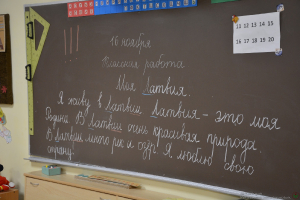 11 12 13 14 15
16 17 18 19 20
16 ноября
Классная работа
Моя Латвия.
Я живу в Латвии. Латвия – это моя
Родина. В Латвии очень красивая природа.
В Латвии много рек и озёр. Я люблю свою
страну.